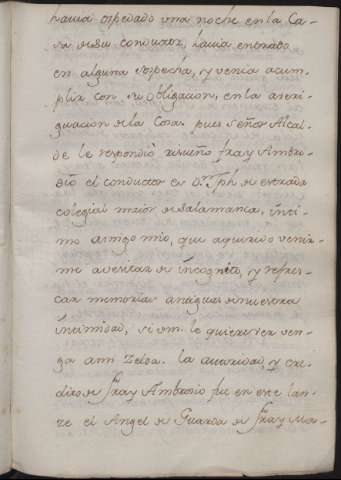 havia ospedado una noche en la Ca-
sa de su conductor, havia entrado
en alguna sospecha, y venia a cum-
plir con su obligacion, en la averi-
guacion de la Cosa. pues Señor Alcal-
de le respondiò risueño fray Ambro-
sio el conductor es Dⁿ Jph. de estrada
colegial maior de Salamanca, inti-
mo amigo mio, que a querido venir-
me a visitar de incognito, y refres-
car memorias antiguas de nuestra
intimidad, si vm. le quiere ver ven-
ga a mi Zelda. la autoridad, y cre-
dito de fray Ambrosio fue en este lan-
ze el Angel de Guarda de fray